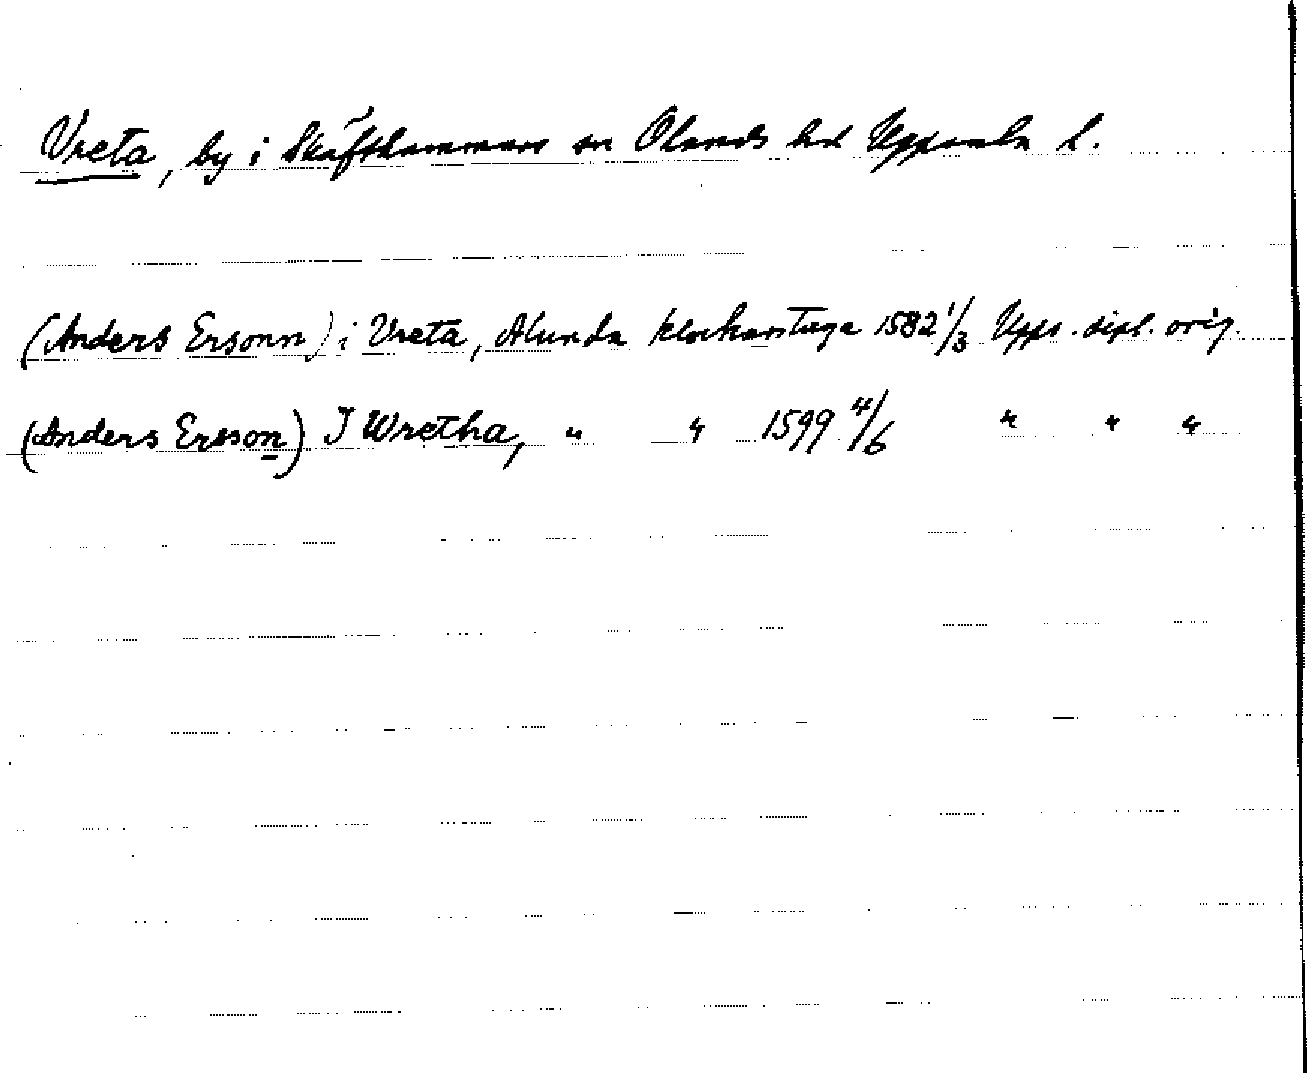 Vreta, by i Skäfthammars sn Olands hd Uppsala l.
(Anders Ersonn) i Vreta, Alunda klockarstuga 1582 1/3 Upps. dipl. orig.
(Anders Erson) I Wretha, " " 1599 4/6 " " "